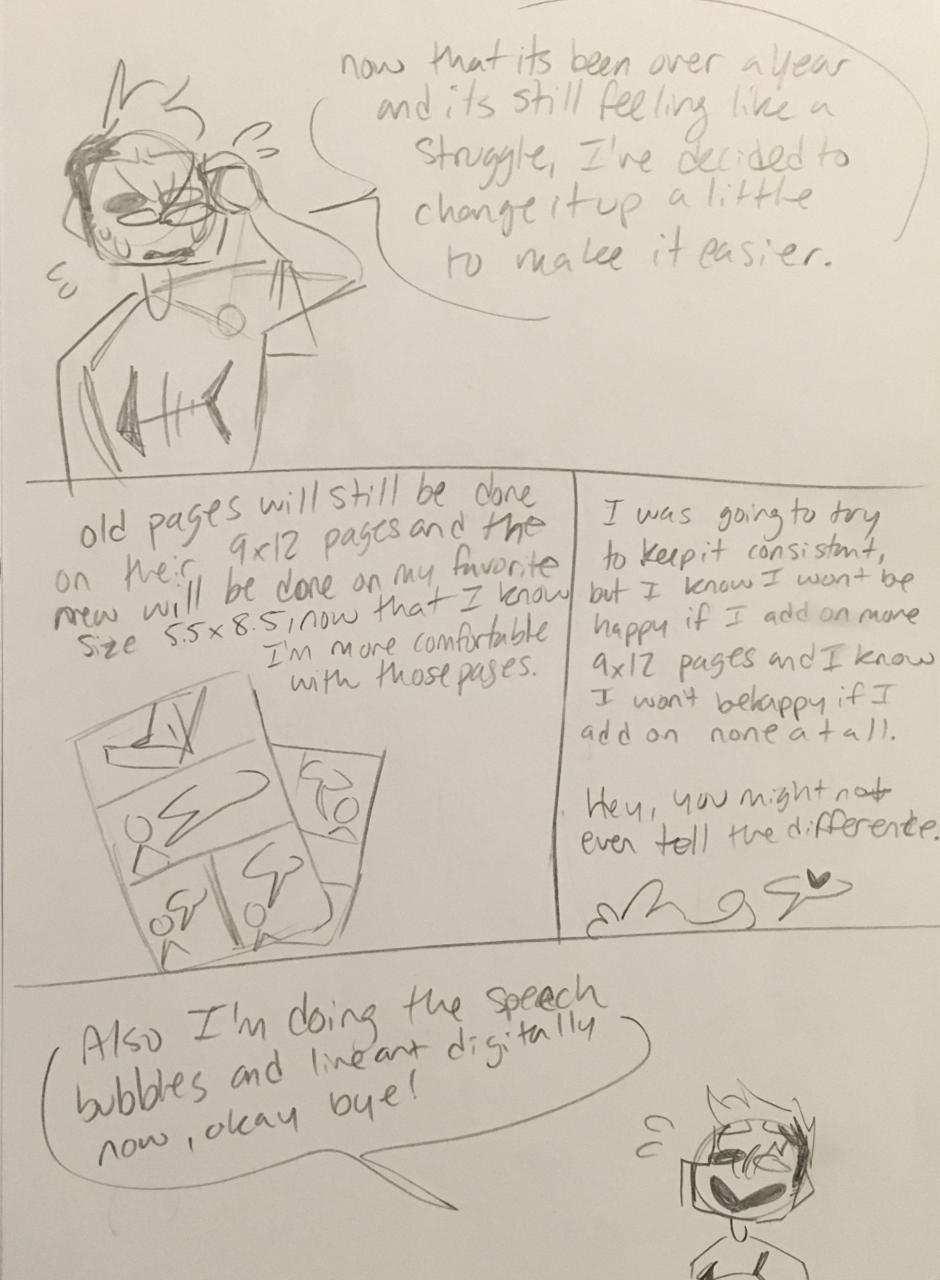 now that its been over a year
and its still feeling like a
struggle, I've decided to
change it up a little
to make it easier.
old pages will still be done
on their 9x12 pages and the
new will be done on my favorite
size 5.5x8.5, now that I know
I'm more comfortable
with those pages.
I was going to try
to keep it consistant,
but I know I won't be
happy if I add on more
9x12 pages and I know
I won't be happy if I
add on none at all.
Hey, you might not
even tell the difference.
Also I'm doing the speech
bubbles and lineart digitally
now, okay bye!